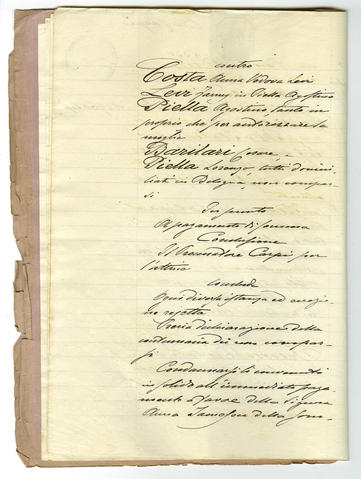 contro
Costa Anna Vedova Levi
Levi Fanny in Piella Agostino
Piella Agostino tanto in
proprio che per autorizzare la
moglie
Barilari Cesare e
Piella Lorenzo, tutti domici-
liati in Bologna, non compar-
si
Sul punto
Di pagamento di somma
Conclusione
Il Procuratore Carpi per
l'attrice
conclude
Ogni diversa istanza ed eccezio-
ne rejetta
Previa dichiarazione della
contumacia dei non compar-
si
Condannarsi li convenuti
in solido all'immediato paga-
mento a favore della Signora
Anna della som-